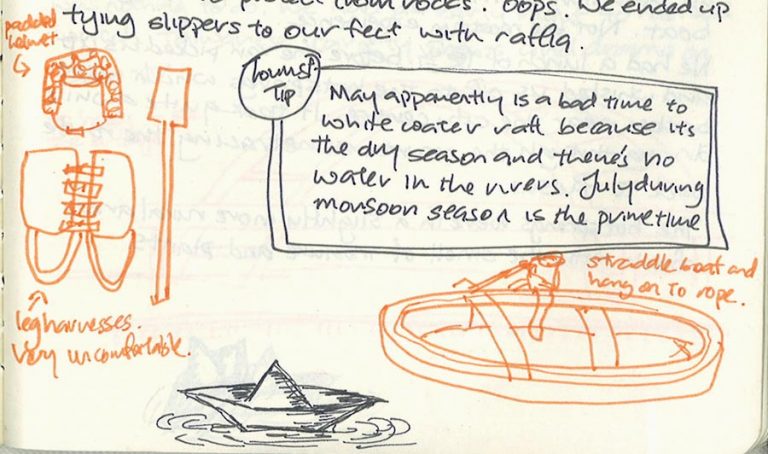 to protect from rocks. Oops. We ended up
tying slippers to our feet with raffia.
padded
helmet
Tourist
Tip
May apparently is a bad time to
white water raft because its
the dry season and there's no
water in the rivers. July during
monsoon season is the prime time
straddle boat and
hang on to rope.
leg harnesses.
Very uncomfortable.